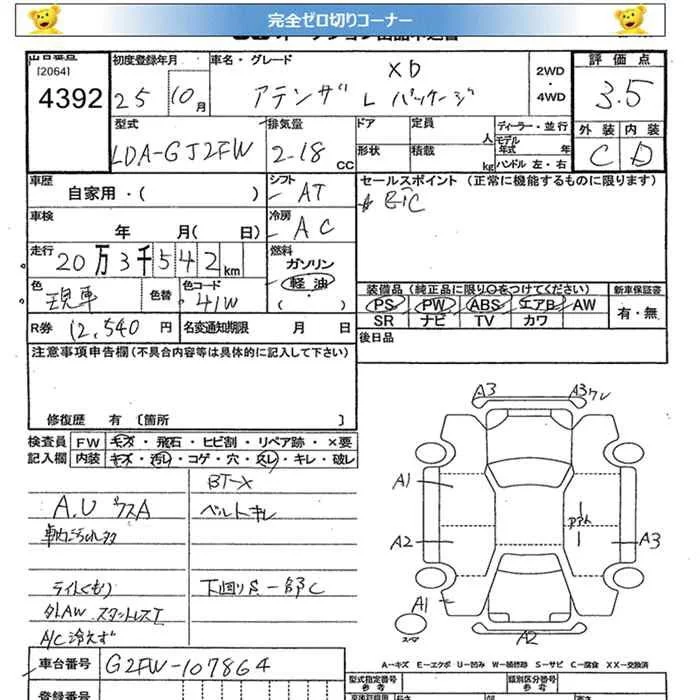 完全ゼロ切りコーナー
[2064]
4392
初度登録年月
25 10月
車名・グレード
XD
アテンザ L パッケージ
2WD
・
4WD
評価点
3.5
外装 内装
C D
型式
LDA-GJ2FW
排気量
2-18 CC
ドア
定員 人
形状
積載 kg
ディーラー・並行
モデル年式 年
ハンドル 左・右
車歴
自家用・( )
シフト
AT
セールスポイント (正常に機能するものに限ります)
車検
年 月( 日)
冷房
AC
走行
20万3千542km
燃料
ガソリン
軽油
( )
色
色替
色コード
41W
装備品 (純正品に限り○をつけてください)
新車保証書
PS PW ABS エアB AW
SR ナビ TV カワ
有・無
R券 12,540 円
名変通知期限 月 日
後日品
注意事項申告欄 (不具合内容等は具体的に記入して下さい)
修復歴 有 〔箇所 〕
検査員記入欄
FW キズ・飛石・ヒビ割・リペア跡・×要
内装 キズ・汚レ・コゲ・穴・スレ・キレ・破レ
BT-X
ベルトキレ
下回りS一部C
ライトくもり
外AW スタットレスT
A/C 冷えず
A3
A3
A1
A2
A3
A1
A2
スペア
A－キズ E－エクボ U－凹み W－補修跡 S－サビ C－腐食 XX－交換済
車台番号 GJ2FW-107864
型式指定番号 参考
類別区分番号 参考
登録番号